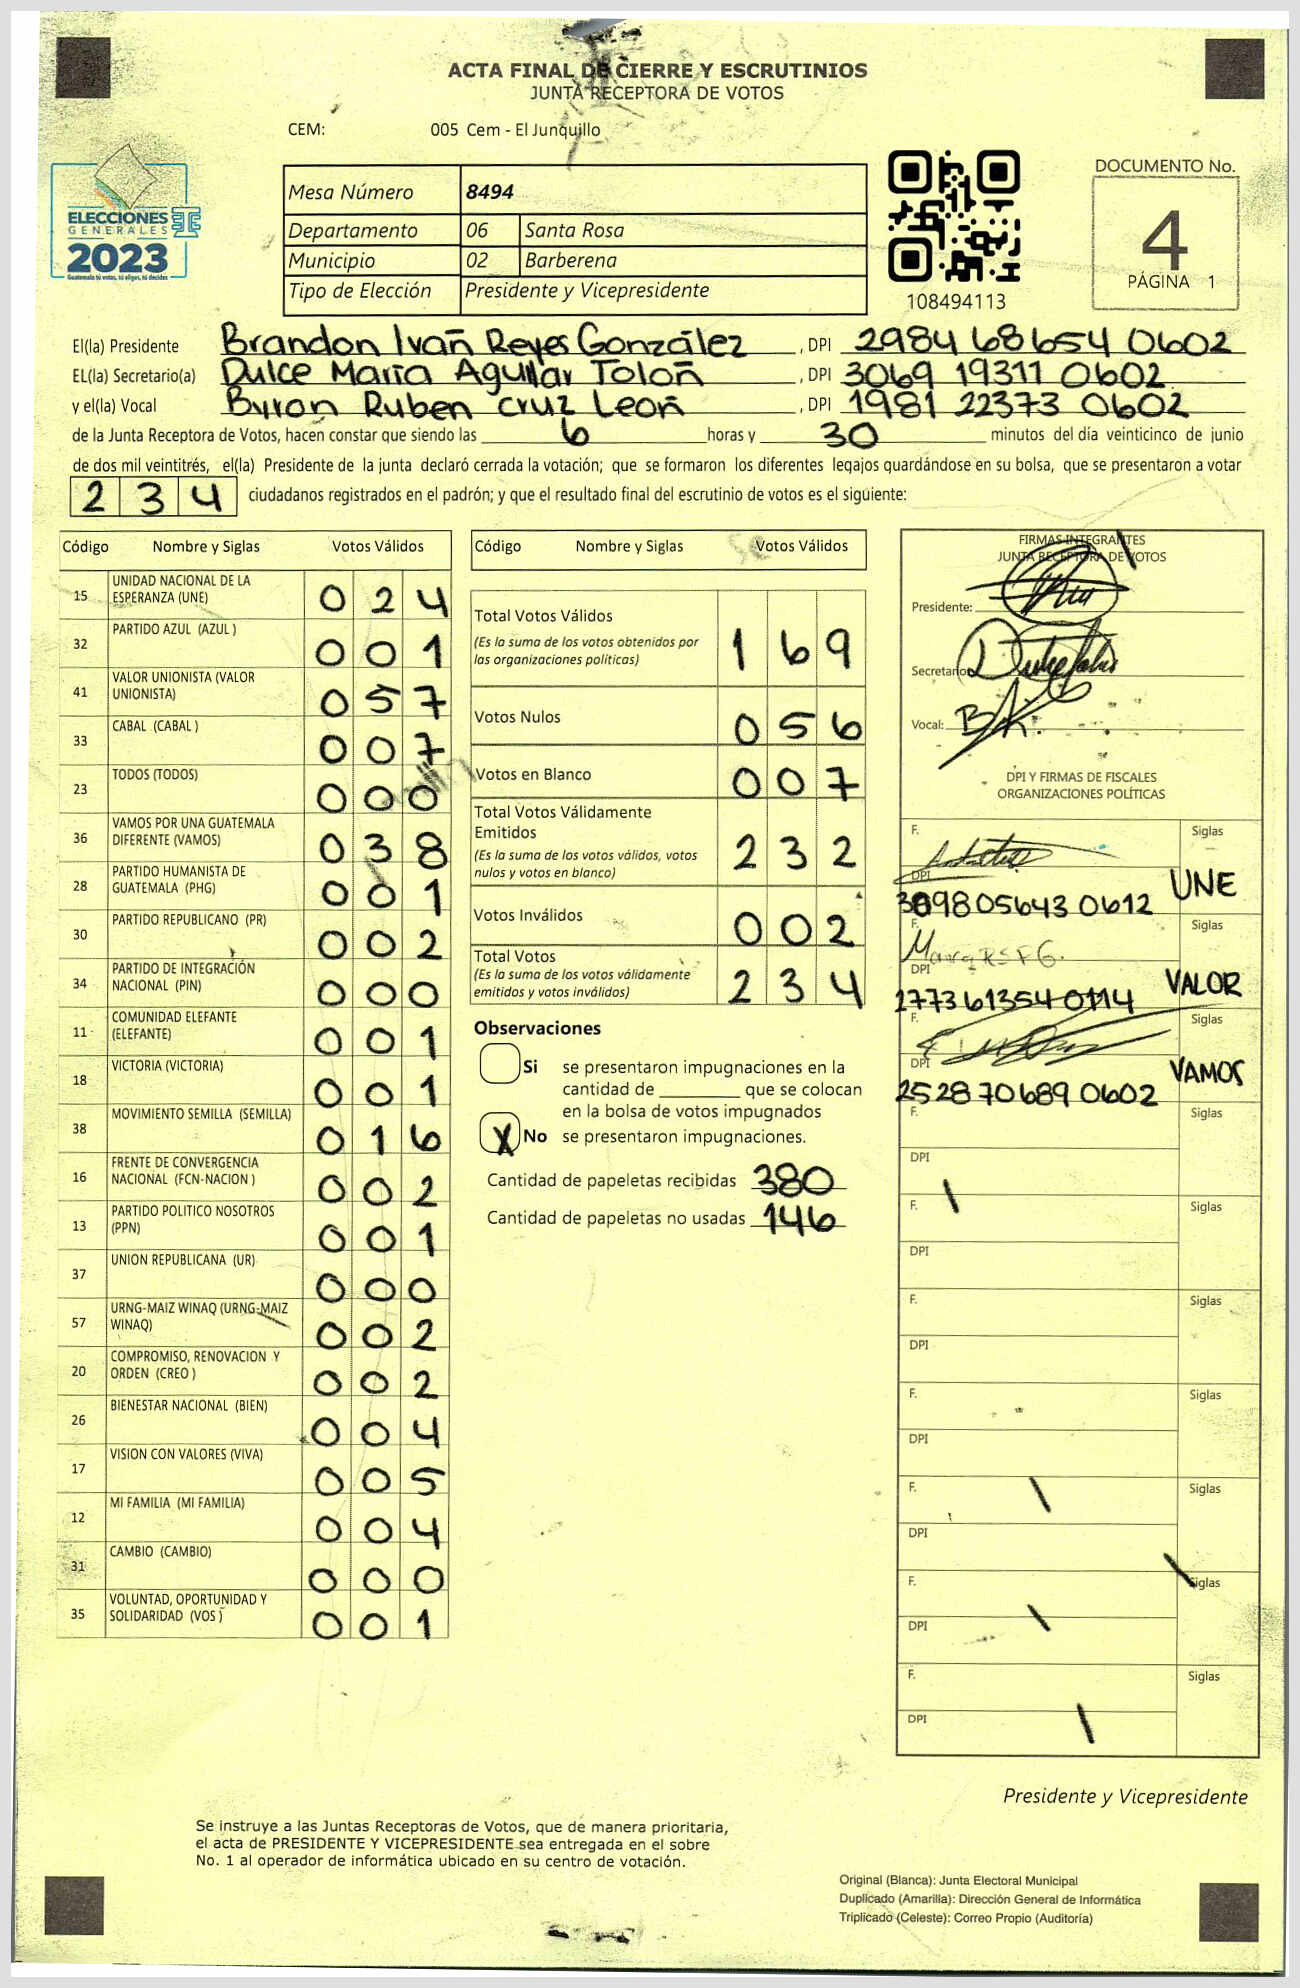 ACTA FINAL DE CIERRE Y ESCRUTINIOS
JUNTA RECEPTORA DE VOTOS
CEM: 005 Cem - El Junquillo
ELECCIONES
GENERALES
2023
Guatemala tú votas, tú eliges, tú decides
Mesa Número 8494
Departamento 06 Santa Rosa
Municipio 02 Barberena
Tipo de Elección Presidente y Vicepresidente
108494113
DOCUMENTO No.
4
PÁGINA 1
El(la) Presidente Brandon Ivañ Reyes González, DPI 2984 68654 0602
EL(la) Secretario(a) Dulce María Aguilar Toloñ, DPI 3069 19311 0602
y el(la) Vocal Byron Ruben Cruz Leoñ, DPI 1981 22373 0602
de la Junta Receptora de Votos, hacen constar que siendo las 6 horas y 30 minutos del día veinticinco de junio
de dos mil veintitrés, el(la) Presidente de la junta declaró cerrada la votación; que se formaron los diferentes legajos guardándose en su bolsa, que se presentaron a votar
2 3 4 ciudadanos registrados en el padrón; y que el resultado final del escrutinio de votos es el siguiente:
Código Nombre y Siglas Votos Válidos
15 UNIDAD NACIONAL DE LA ESPERANZA (UNE) 0 2 4
32 PARTIDO AZUL (AZUL ) 0 0 1
41 VALOR UNIONISTA (VALOR UNIONISTA) 0 5 7
33 CABAL (CABAL ) 0 0 7
23 TODOS (TODOS) 0 0 0
36 VAMOS POR UNA GUATEMALA DIFERENTE (VAMOS) 0 3 8
28 PARTIDO HUMANISTA DE GUATEMALA (PHG) 0 0 1
30 PARTIDO REPUBLICANO (PR) 0 0 2
34 PARTIDO DE INTEGRACIÓN NACIONAL (PIN) 0 0 0
11 COMUNIDAD ELEFANTE (ELEFANTE) 0 0 1
18 VICTORIA (VICTORIA) 0 0 1
38 MOVIMIENTO SEMILLA (SEMILLA) 0 1 6
16 FRENTE DE CONVERGENCIA NACIONAL (FCN-NACION ) 0 0 2
13 PARTIDO POLITICO NOSOTROS (PPN) 0 0 1
37 UNION REPUBLICANA (UR) 0 0 0
57 URNG-MAIZ WINAQ (URNG-MAIZ WINAQ) 0 0 2
20 COMPROMISO, RENOVACION Y ORDEN (CREO ) 0 0 2
26 BIENESTAR NACIONAL (BIEN) 0 0 4
17 VISION CON VALORES (VIVA) 0 0 5
12 MI FAMILIA (MI FAMILIA) 0 0 4
31 CAMBIO (CAMBIO) 0 0 0
35 VOLUNTAD, OPORTUNIDAD Y SOLIDARIDAD (VOS ) 0 0 1
Código Nombre y Siglas Votos Válidos
Total Votos Válidos 1 6 9
(Es la suma de los votos obtenidos por
las organizaciones políticas)
Votos Nulos 0 5 6
Votos en Blanco 0 0 7
Total Votos Válidamente
Emitidos 2 3 2
(Es la suma de los votos válidos, votos
nulos y votos en blanco)
Votos Inválidos 0 0 2
Total Votos 2 3 4
(Es la suma de los votos válidamente
emitidos y votos inválidos)
Observaciones
Si se presentaron impugnaciones en la
cantidad de ________ que se colocan
en la bolsa de votos impugnados
X No se presentaron impugnaciones.
Cantidad de papeletas recibidas 380
Cantidad de papeletas no usadas 146
FIRMAS INTEGRANTES
JUNTA RECEPTORA DE VOTOS
Presidente:
Secretario
Vocal:
DPI Y FIRMAS DE FISCALES
ORGANIZACIONES POLÍTICAS
F. Siglas
DPI 3098056430612 UNE
F. Siglas
DPI 1773613540114 VALOR
F. Siglas
DPI 2528706890602 VAMOS
F. Siglas
DPI
F. Siglas
DPI
F. Siglas
DPI
F. Siglas
DPI
F. Siglas
DPI
F. Siglas
DPI
F. Siglas
DPI
Presidente y Vicepresidente
Se instruye a las Juntas Receptoras de Votos, que de manera prioritaria,
el acta de PRESIDENTE Y VICEPRESIDENTE sea entregada en el sobre
No. 1 al operador de informática ubicado en su centro de votación.
Original (Blanca): Junta Electoral Municipal
Duplicado (Amarilla): Dirección General de Informática
Triplicado (Celeste): Correo Propio (Auditoría)